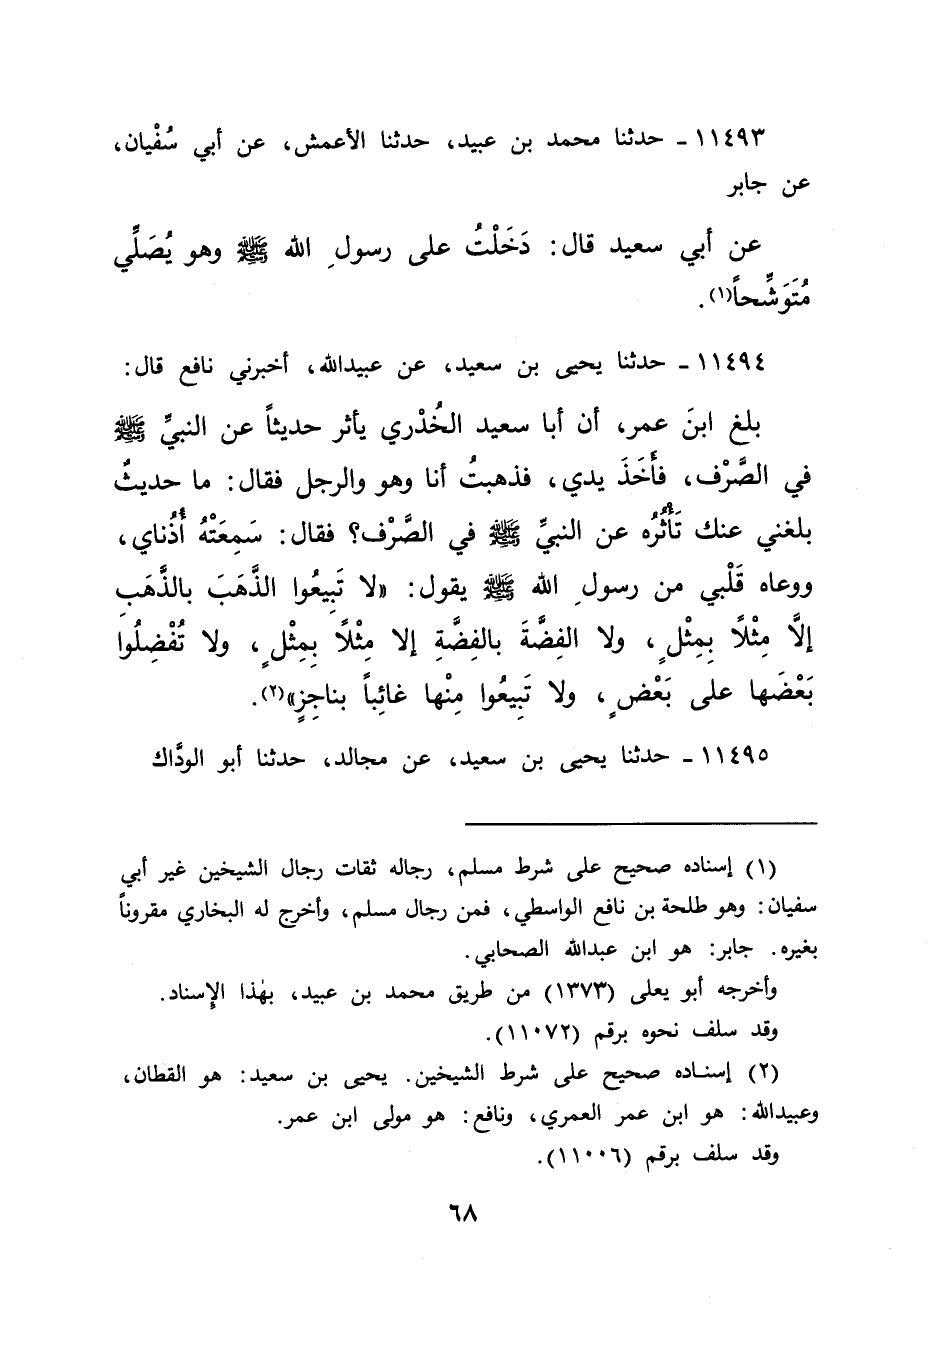 ١١٤٩٣ ـ حدثنا محمد بن عبيد، حدثنا الأعمش، عن أبي سُفْيان،
عن جابر
عن أبي سعيد قال: دَخَلْتُ على رسولِ الله ﷺ وهو يُصَلِّي
مُتَوَشِّحاً(١).
١١٤٩٤ ـ حدثنا يحيى بن سعيد، عن عبيدالله، أخبرني نافع قال:
بلغ ابنَ عمر، أن أبا سعيد الخُدْري يأثر حديثاً عن النبيِّ ﷺ
في الصَّرْف، فأَخَذَ يدي، فذهبتُ أنا وهو والرجل فقال: ما حديثٌ
بلغني عنك تَأْثُرُه عن النبيِّ ﷺ في الصَّرْف؟ فقال: سَمِعَتْهُ أُذُناي،
ووعاه قَلْبي من رسولِ الله ﷺ يقول: «لا تَبِيعُوا الذَّهَبَ بالذَّهَبِ
إلَّا مِثْلاً بِمِثْلٍ، ولا الفِضَّةَ بالفِضَّةِ إلا مِثْلاً بِمِثْلٍ، ولا تُفْضِلُوا
بَعْضَها على بَعْضٍ، ولا تَبِيعُوا مِنْها غائِباً بناجِزٍ»(٢).
١١٤٩٥ ـ حدثنا يحيى بن سعيد، عن مجالد، حدثنا أبو الودَّاك
(١) إسناده صحيح على شرط مسلم، رجاله ثقات رجال الشيخين غير أبي
سفيان: وهو طلحة بن نافع الواسطي، فمن رجال مسلم، وأخرج له البخاري مقروناً
بغيره. جابر: هو ابن عبدالله الصحابي.
وأخرجه أبو يعلى (١٣٧٣) من طريق محمد بن عبيد، بهٰذا الإسناد.
وقد سلف نحوه برقم (١١٠٧٢).
(٢) إسناده صحيح على شرط الشيخين. يحيى بن سعيد: هو القطان،
وعبيدالله: هو ابن عمر العمري، ونافع: هو مولى ابن عمر.
وقد سلف برقم (١١٠٠٦).
٦٨